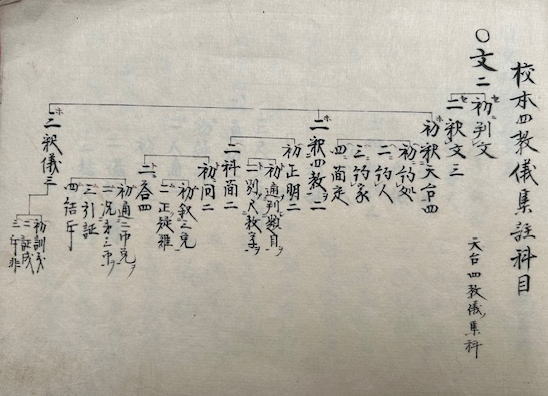 校本四教儀集註科目
天台四教儀集科
〇文二
初判文
二釈文三
初釈天台四
初約処
二約人
三約家
四簡定
二釈四教二
初正明二
初通判数目
二別尺教
二科簡二
初問二
初叙
二正疑難
二答四
初通
二況
三引証
四結斥
三釈儀三
初訓
二証成
三斥非